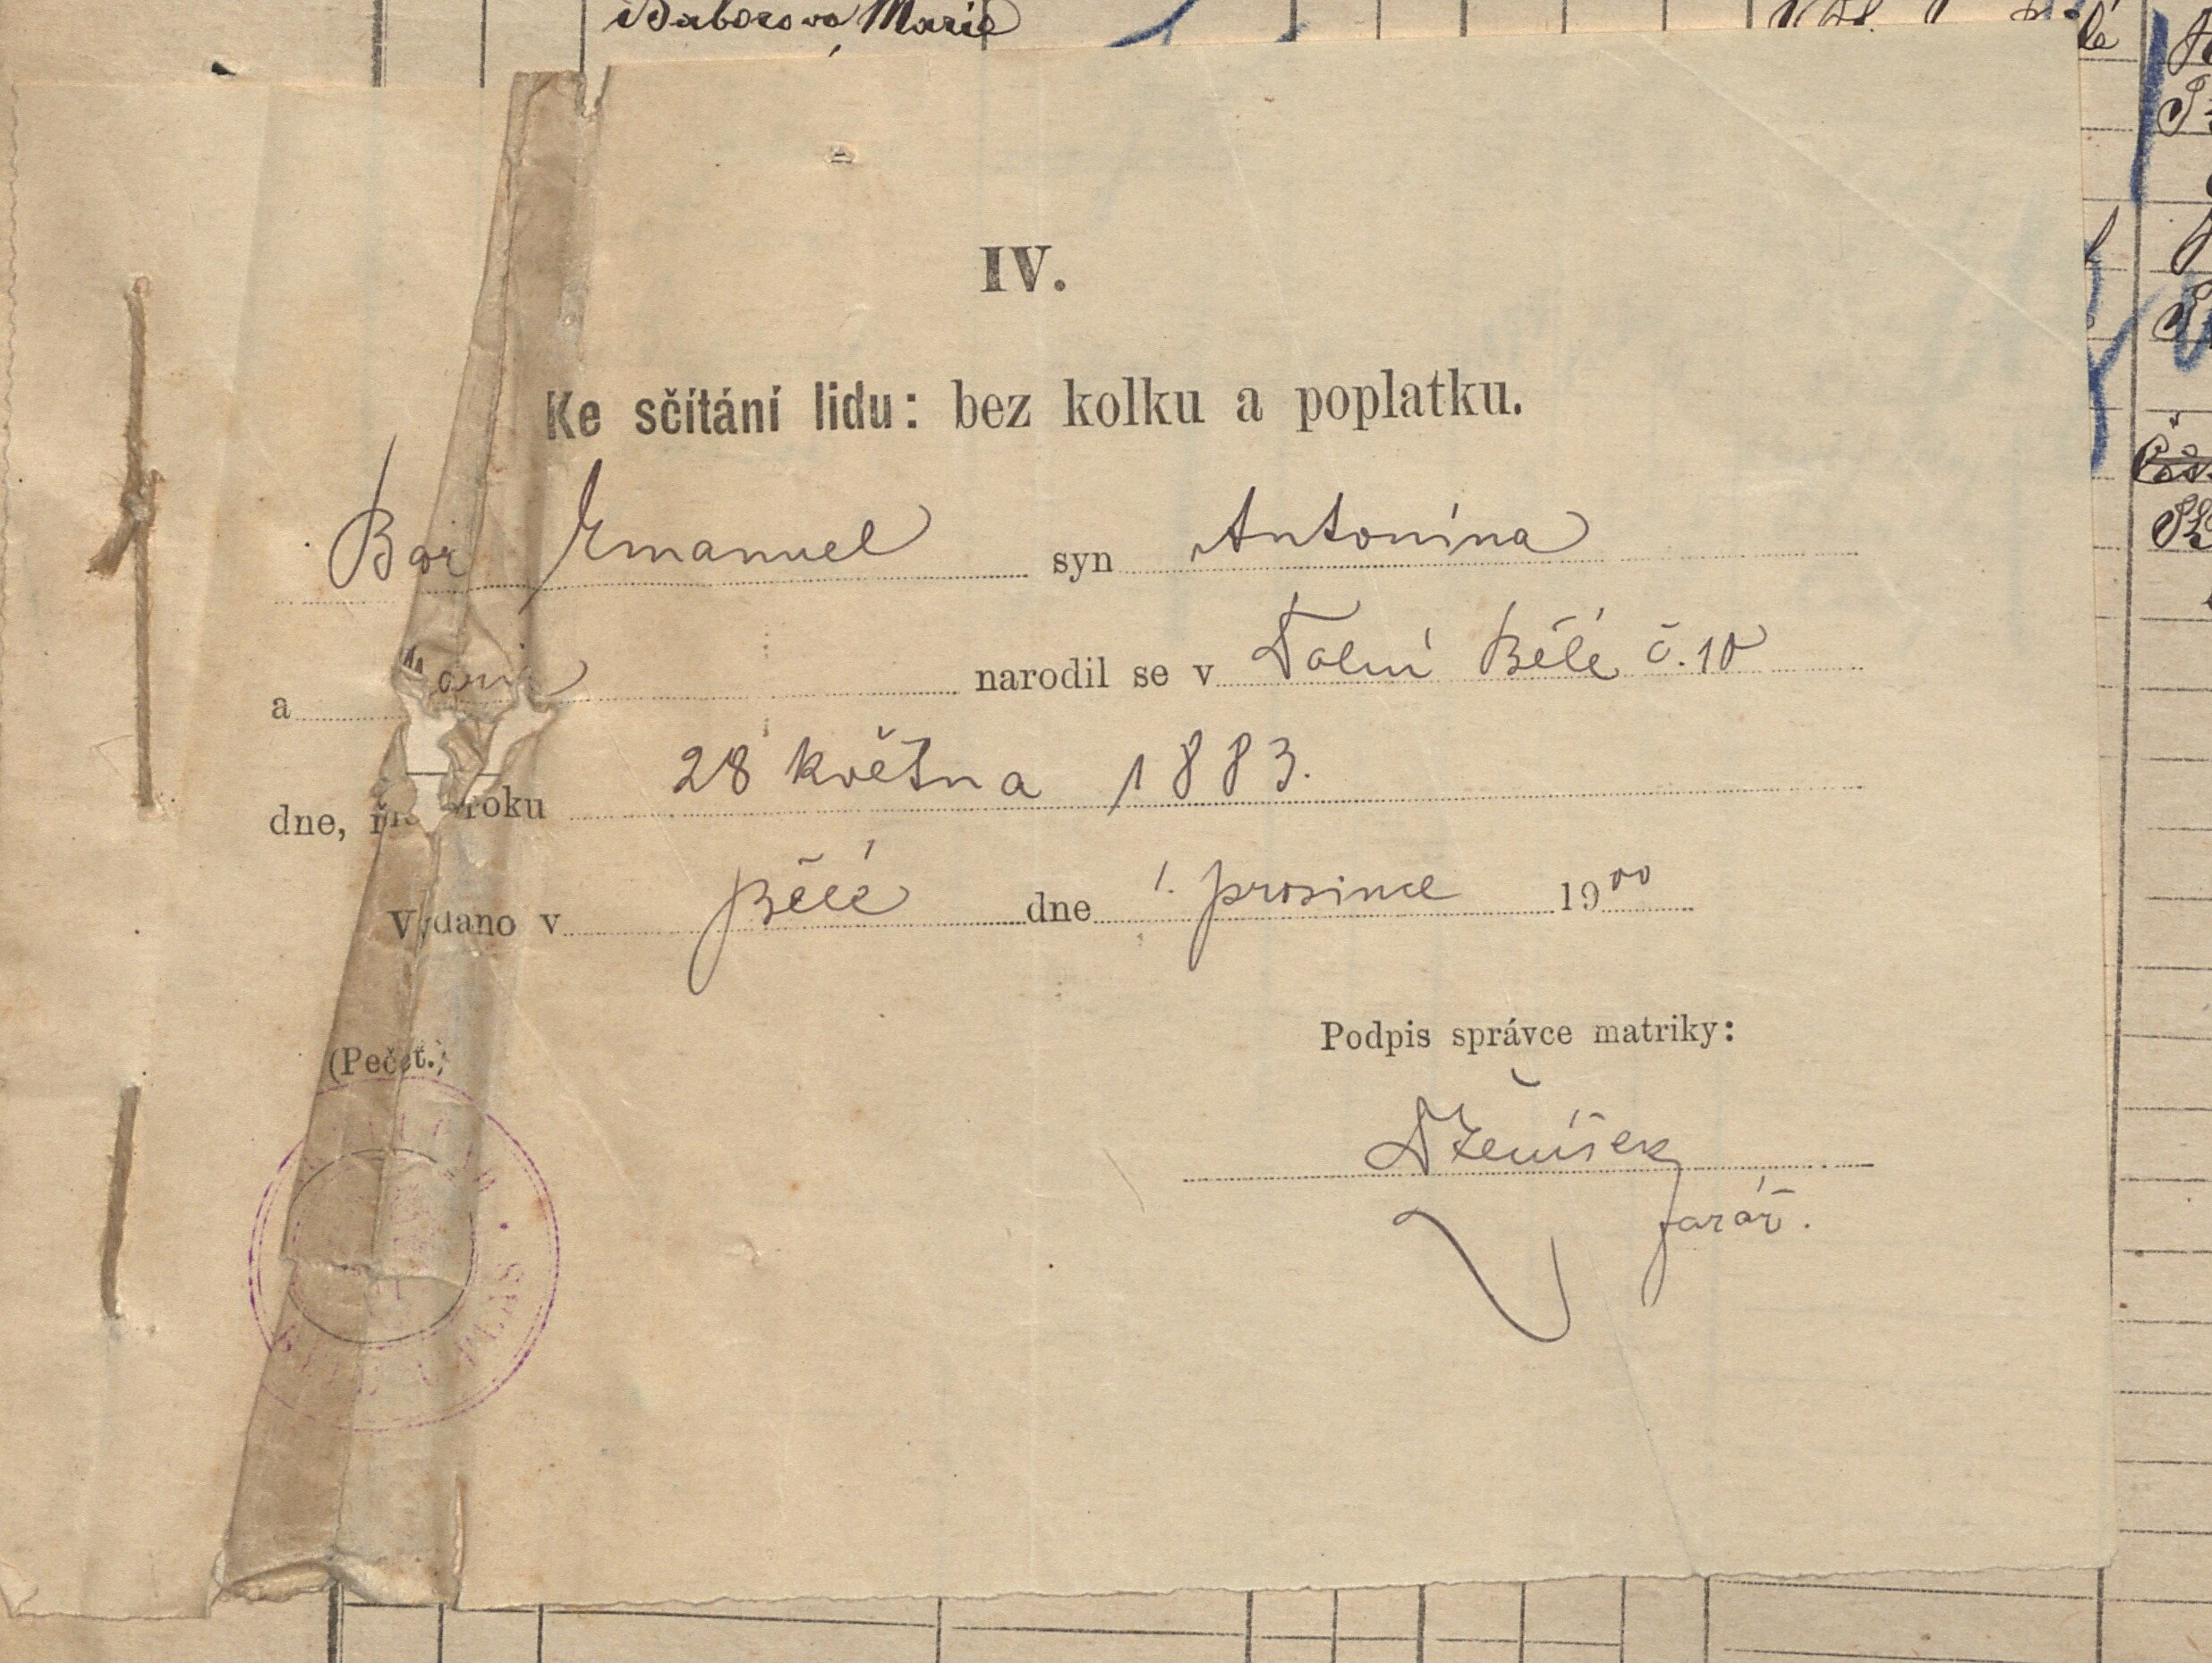 Baborova Marie
IV.
Ke sčítání lidu: bez kolku a poplatku.
Emanuel syn Antonína
a narodil se v Dolní Bělé č. 10
dne, roku 28 května 1883.
Vydáno v Bělé dne 1. prosince 1900
(Pečeť.)
Podpis správce matriky:
farář.